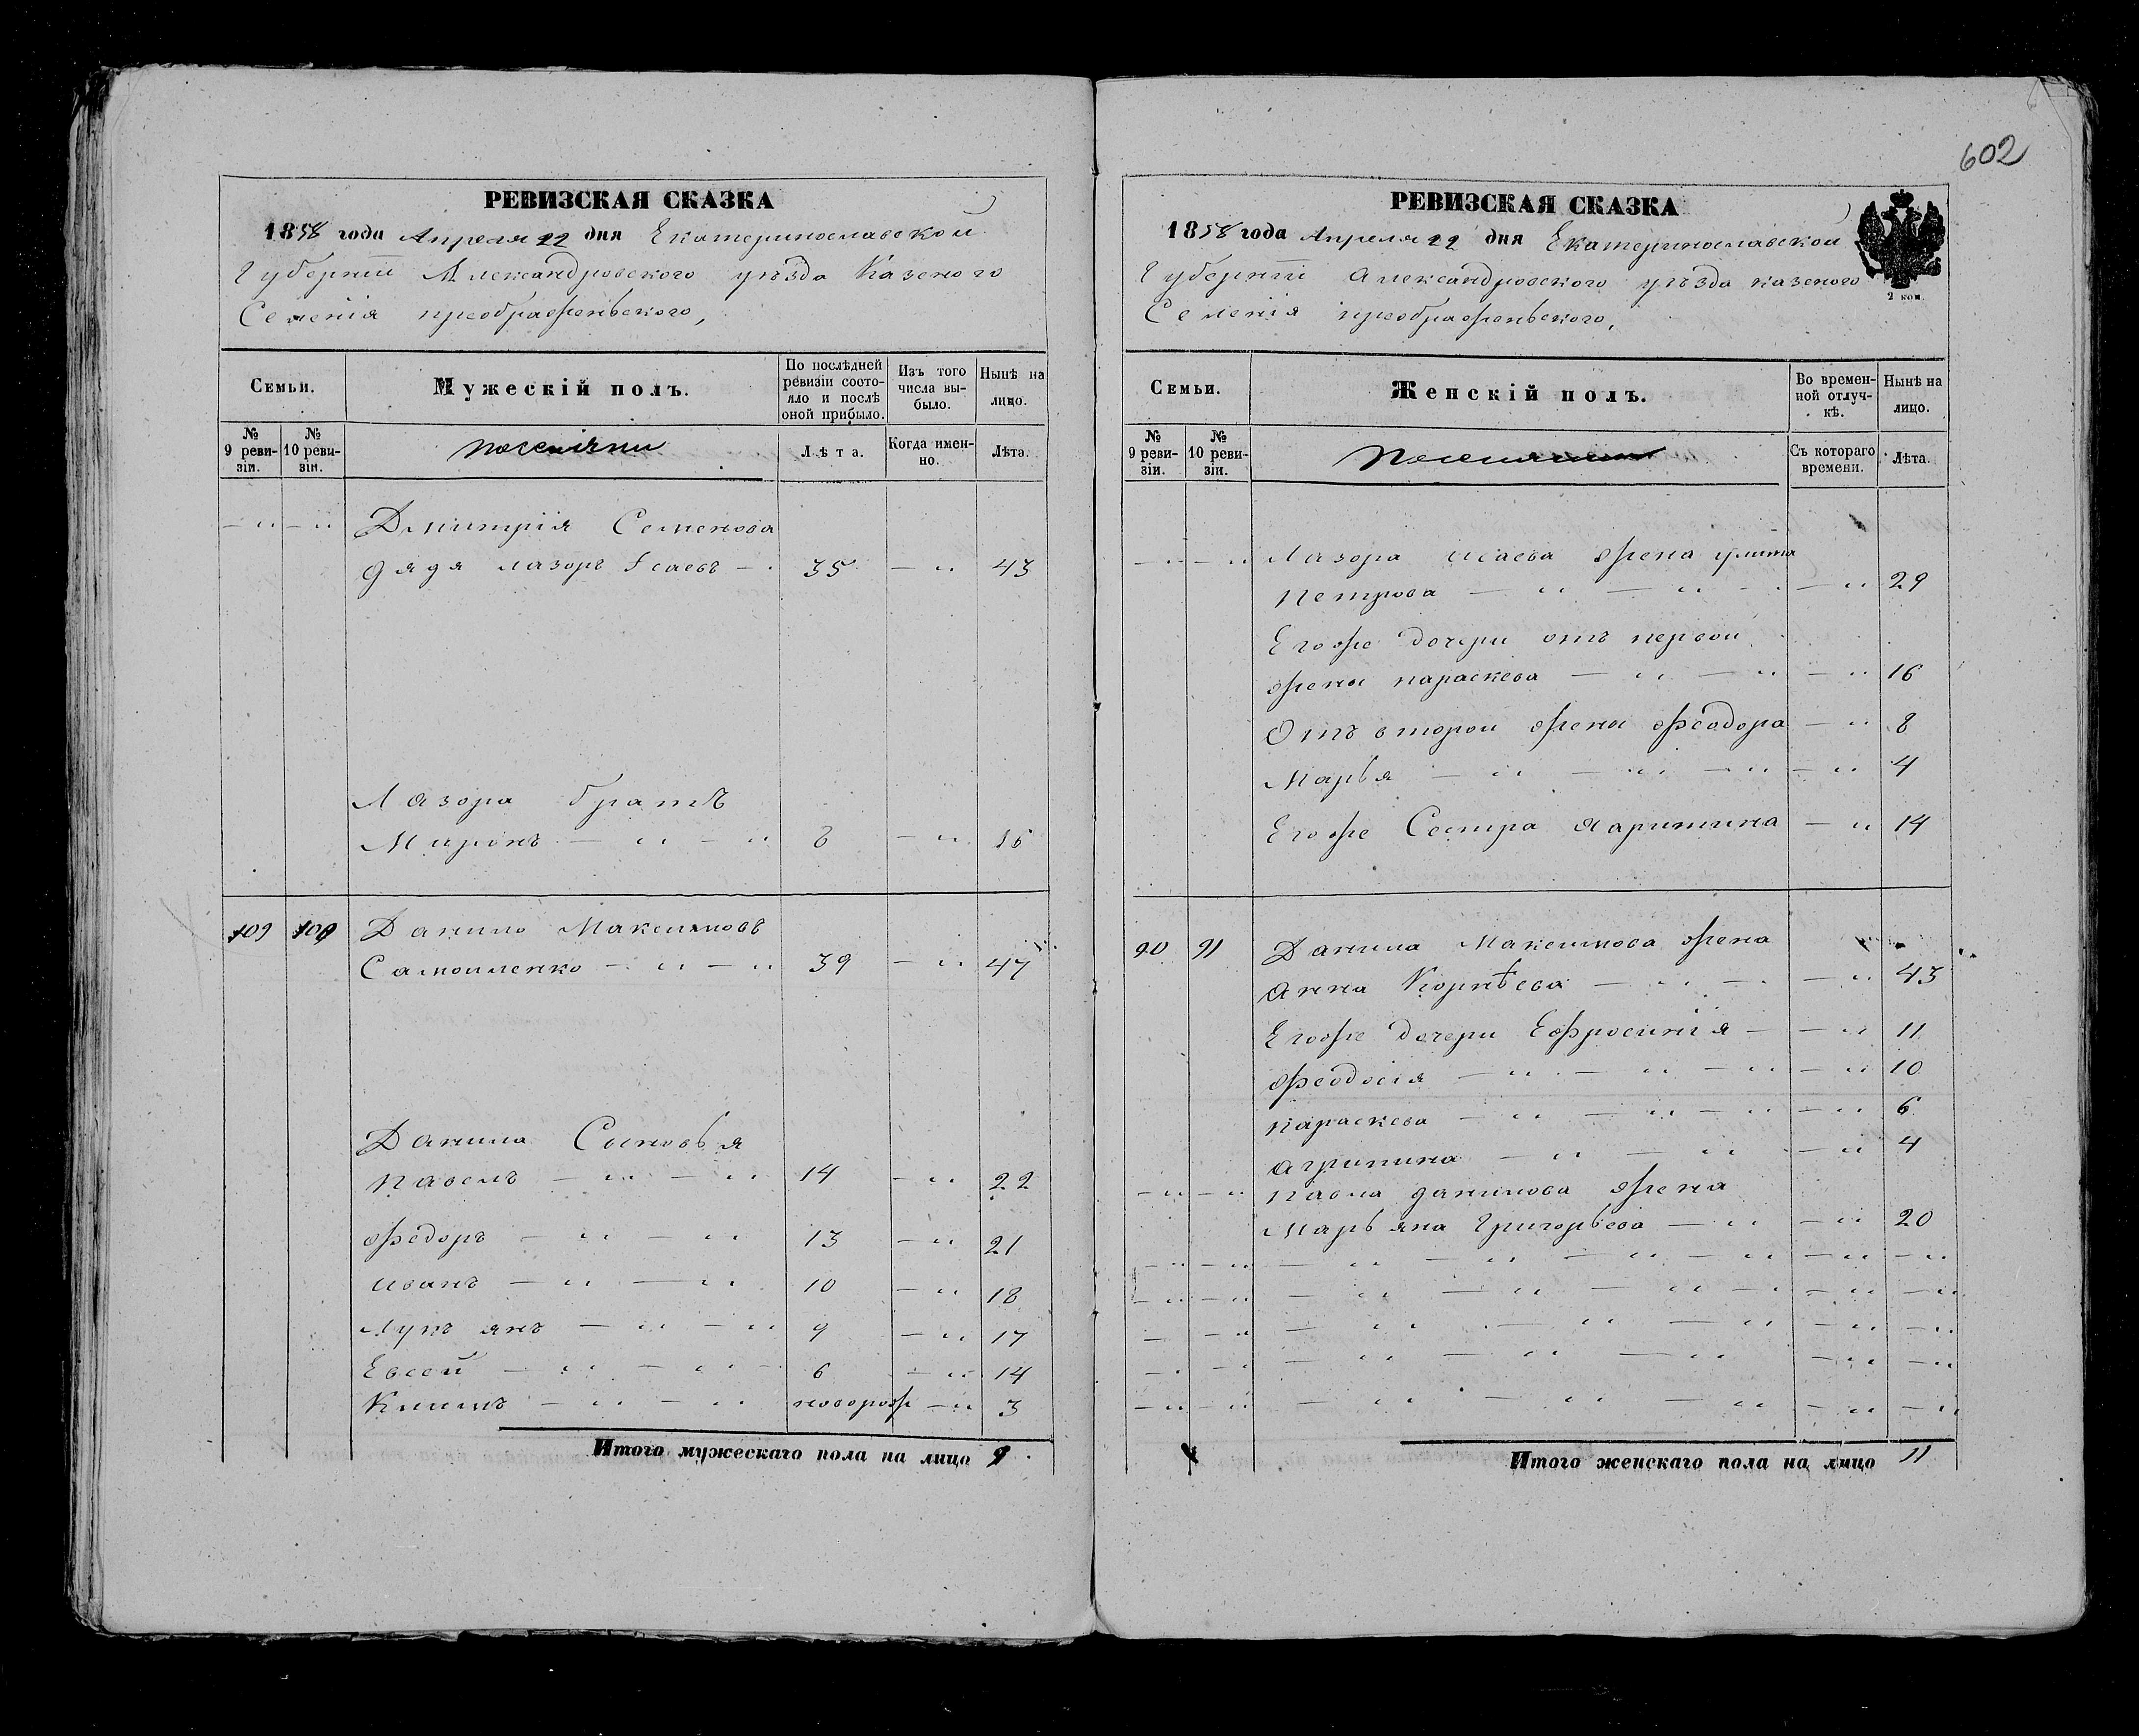 602
РЕВИЗСКАЯ СКАЗКА
1858 года Апреля 22 дня Екатеринославской
Губерніи Александровского уѣзда Казеного
Селенія преображеньского,
Семьи.
Мужескій полъ.
По послѣдней ревизіи состояло и послѣ оной прибыло.
Изъ того числа выбыло.
Нынѣ на лицо.
№ 9 ревизіи.
№ 10 ревизіи.
поселяни
Лѣта.
Когда именно.
Лѣта.
— " — " Дмитрія Семенова
дядя лазоръ Ісаевъ — . 35 — " 43
Лазора братъ
Миронъ — " — " 8 — " 16
109 109 Данило Максимовъ
Самоиленко — " — " 39 — " 47
Данила Сыновья
павелъ — " — " 14 — " 22
Ѳедоръ — " — " 13 — " 21
иванъ — " — " 10 — " 18
Лукъянъ — " — " 9 — " 17
Евсей — " — " 6 — " 14
Климъ — " — " новорож — " 3
Итого мужескаго пола на лицо 9
РЕВИЗСКАЯ СКАЗКА
1858 года Апреля 22 дня Екатеринославской
Губерніи Александровского уѣзда казеного
Селенія преображеньского,
2 коп.
Семьи.
Женскій полъ.
Во временной отлучкѣ.
Нынѣ на лицо.
№ 9 ревизіи.
№ 10 ревизіи.
Съ котораго времени.
Лѣта.
— " — " Лазора исаева жена улита
петрова — " — " — " 29
Егоже дочери отъ первои
жены параскева — " — " — " 16
Отъ второи жены Феодора — " 8
Марья — " — " — " — " 4
Егоже Сестра — " 14
90 91 Данила Максимова жена
анна Корнѣева — " — — " 43
Егоже дочери Ефросинія — — " 11
Феодосія — " — " — " — " 10
параскева — " — " — " — " 6
агрипина — " — " — " 4
— " — " павла данилова жена
Марьяна Григорьева — " — " 20
— " — " — " — " — " — " — " — "
— " — " — " — " — " — " — "
— — " — " — " — " — " — "
— . — " — " — " — " — " — "
— " — " — " — " — " — " — "
Итого женскаго пола на лицо 11